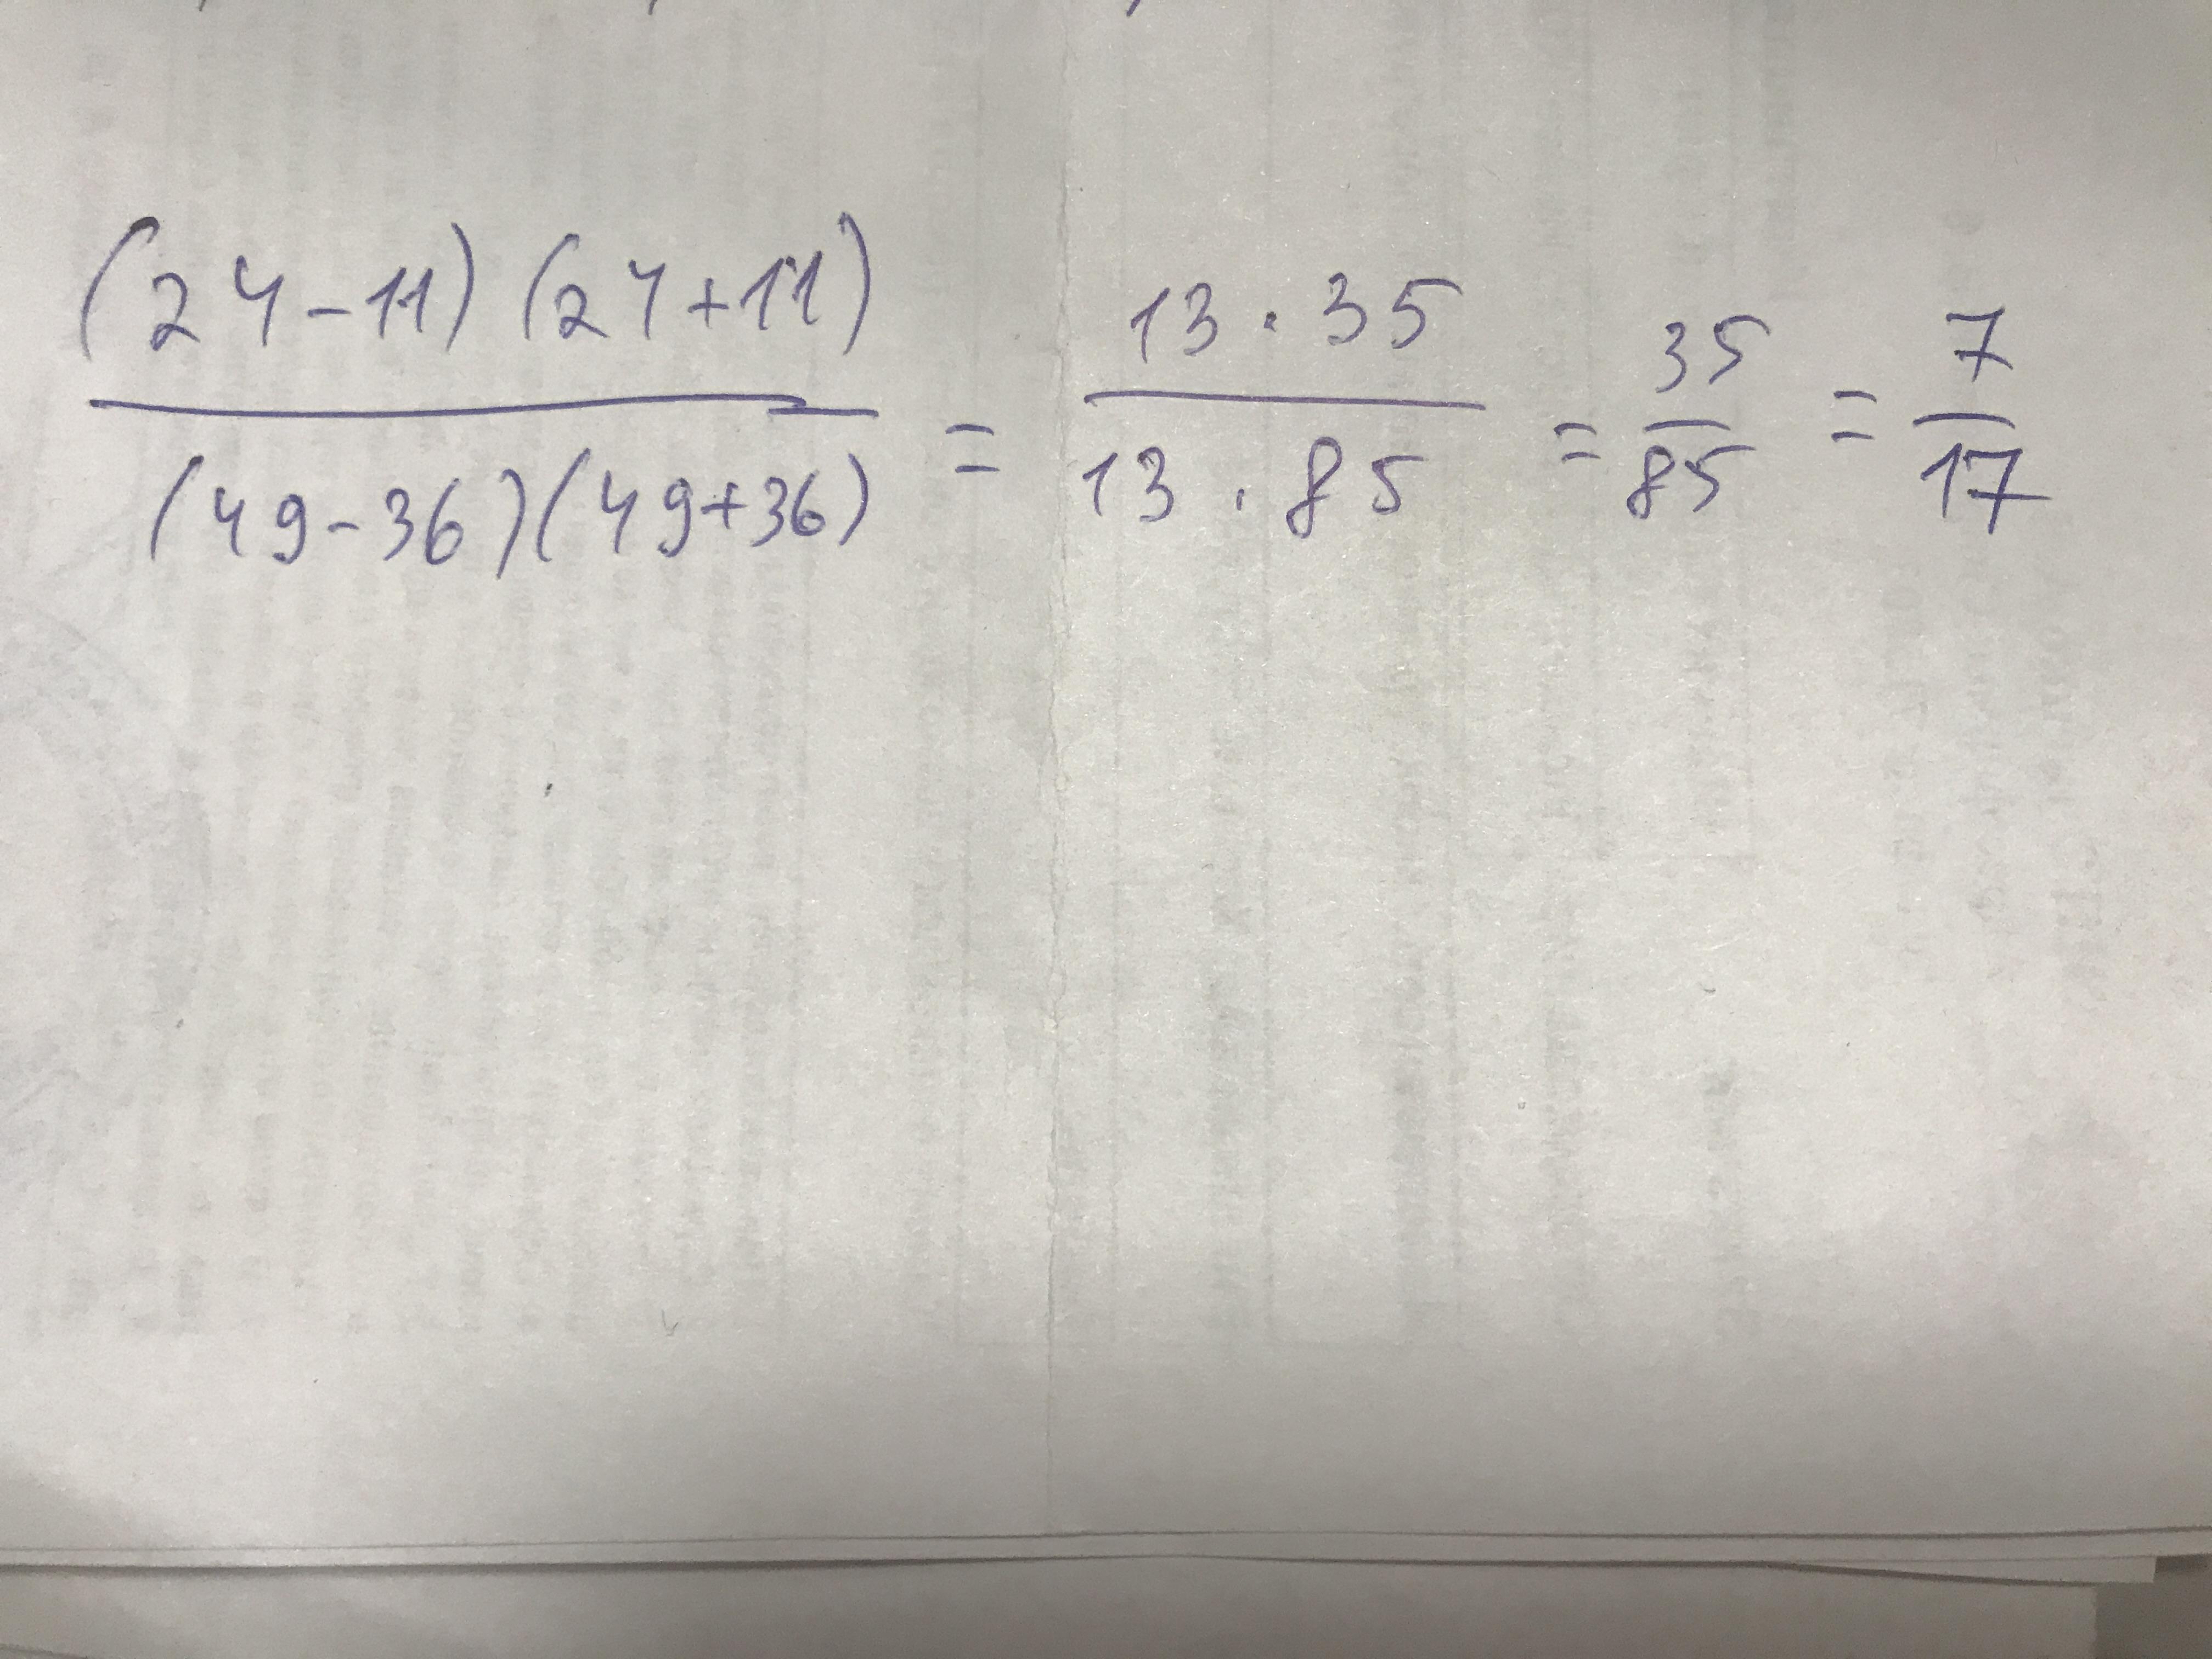 (24-11)(24+11) / (49-36)(49+36) = 13·35 / 13·85 = 35/85 = 7/17